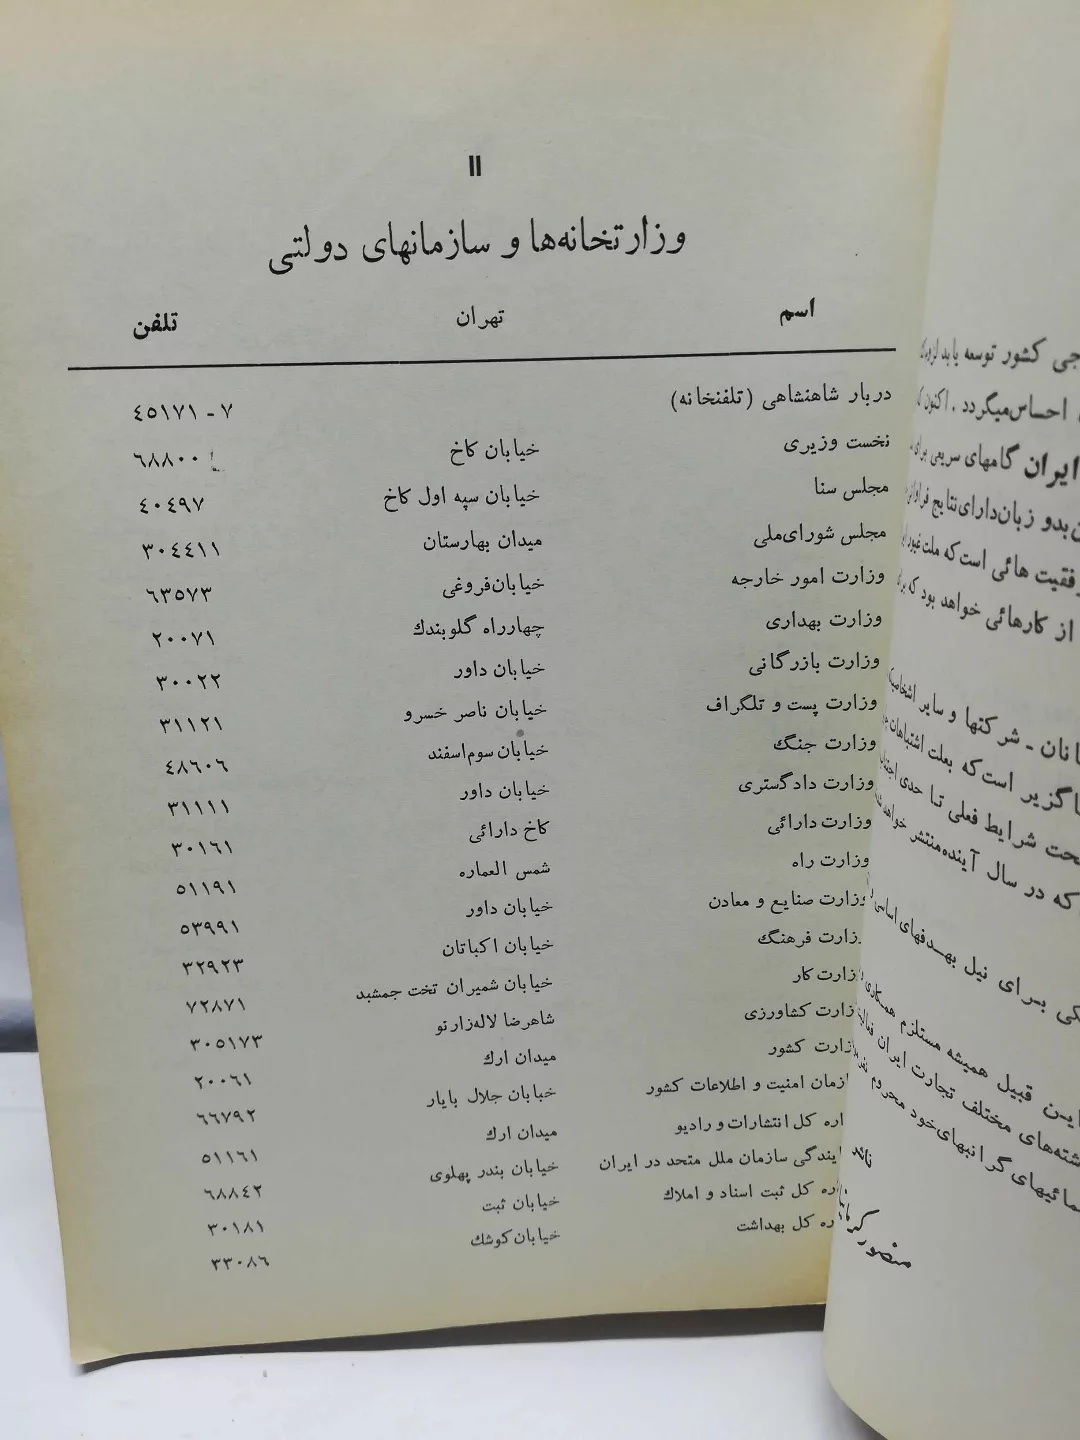 II
وزارتخانه‌ها و سازمانهای دولتی
اسم تهران تلفن
دربار شاهنشاهی (تلفنخانه) ٤٥١٧١ - ٧
نخست وزیری خیابان کاخ ٦٨٨٠٠
مجلس سنا خیابان سپه اول کاخ ٤٠٤٩٧
مجلس شورای‌ملی میدان بهارستان ٣٠٤٤١١
وزارت امور خارجه خیابان‌فروغی ٦٣٥٧٣
وزارت بهداری چهارراه گلوبندك ٢٠٠٧١
وزارت بازرگانی خیابان داور ٣٠٠٢٢
وزارت پست و تلگراف خیابان ناصر خسرو ٣١١٢١
وزارت جنگ خیابان سوم‌اسفند ٤٨٦٠٦
وزارت دادگستری خیابان داور ٣١١١١
وزارت دارائی کاخ دارائی ٣٠١٦١
وزارت راه شمس العماره ٥١١٩١
وزارت صنایع و معادن خیابان داور ٥٣٩٩١
زارت فرهنگ خیابان اکباتان ٣٢٩٢٣
زارت کار خیابان شمیران تخت جمشبد ٧٢٨٧١
زارت کشاورزی شاهرضا لاله‌زارنو ٣٠٥١٧٣
زارت کشور میدان ارك ٢٠٠٦١
ازمان امنیت و اطلاعات کشور خبابان جلال بایار ٦٦٧٩٢
اره کل انتشارات و رادیو میدان ارك ٥١١٦١
ایندگی سازمان ملل متحد در ایران خیابان بندر پهلوی ٦٨٨٤٢
ره کل ثبت اسناد و املاك خیابان ثبت ٣٠١٨١
ره کل بهداشت خیابان‌کوشك ٣٣٠٨٦
جی کشور توسعه یابد
احساس‌میگردد . اکنون
ایران گامهای سریعی برای
بدو زبان‌دارای‌نتایج
فقیت هائی است‌که ملت
از کارهائی خواهد بود که
انان - شرکتها و سایر
گزیر است‌که بعلت اشتباهات
حت شرایط فعلی تا حدی
که در سال آینده‌منتشر خواهد
کی برای نیل بهدفهای اساسی
این قبیل همیشه مستلزم همکاری
شته‌های مختلف تجارت ایران
مائیهای گرانبهای‌خود محروم
منصور